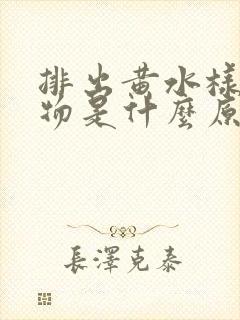 排出黄水樣
物是什麼原
長澤克泰